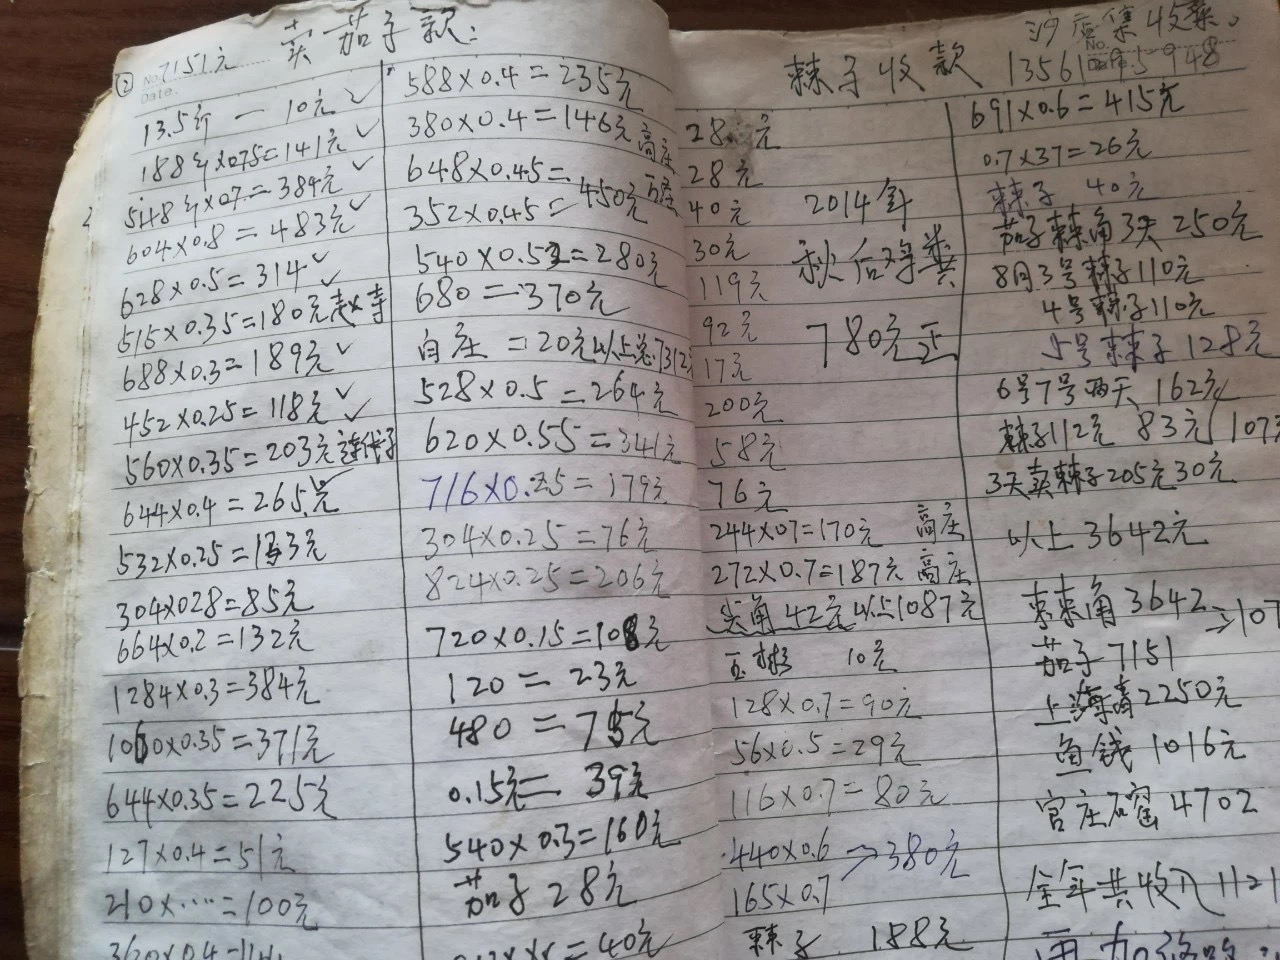 ② No. 7151元
Date.
卖茄子款:
13.5斤 — 10元 ✓
188斤×0.75=141元 ✓
548斤×0.7=384元 ✓
604×0.8=483元 ✓
628×0.5=314 ✓
515×0.35=180元 ✓
688×0.3=189元 ✓
452×0.25=118元 ✓
560×0.35=203元
644×0.4=265元
532×0.25=133元
304×028=85元
664×0.2=132元
1284×0.3=384元
1060×0.35=371元
644×0.35=225元
127×0.4=51元
210×……=100元
360×0.4=144
588×0.4=235元
380×0.4=146元 高庄
648×0.45=
352×0.45= 450元
540×0.52=280元
680=370元
白庄=20元以上总7312元
528×0.5=264元
620×0.55=341元
716×0.25=179元
304×0.25=76元
824×0.25=206元
720×0.15=108元
120=23元
480=75元
0.15元=39元
540×0.3=160元
茄子28元
=40元
棘子收款
28元
28元
40元
30元
119元
92元
17元
200元
58元
76元
2014年
秋后
780元正
244×07=170元 高庄
272×0.7=187元 高庄
尖角42元以上1087元
10元
128×0.7=90元
56×0.5=29元
116×0.7=80元
440×0.6
165×0.7
→380元
棘子 188元
No.
Date.
691×0.6=415元
0.7×37=26元
棘子 40元
茄子棘角3天250元
8月3号棘子110元
4号棘子110元
5号棘子128元
6号7号两天162元
棘子112元 83元 107元
3天卖棘子205元30元
以上3642元
棘角3642 →107
茄子7151
2250元
鱼钱1016元
官庄石窑4702
全年共收入1121
再加